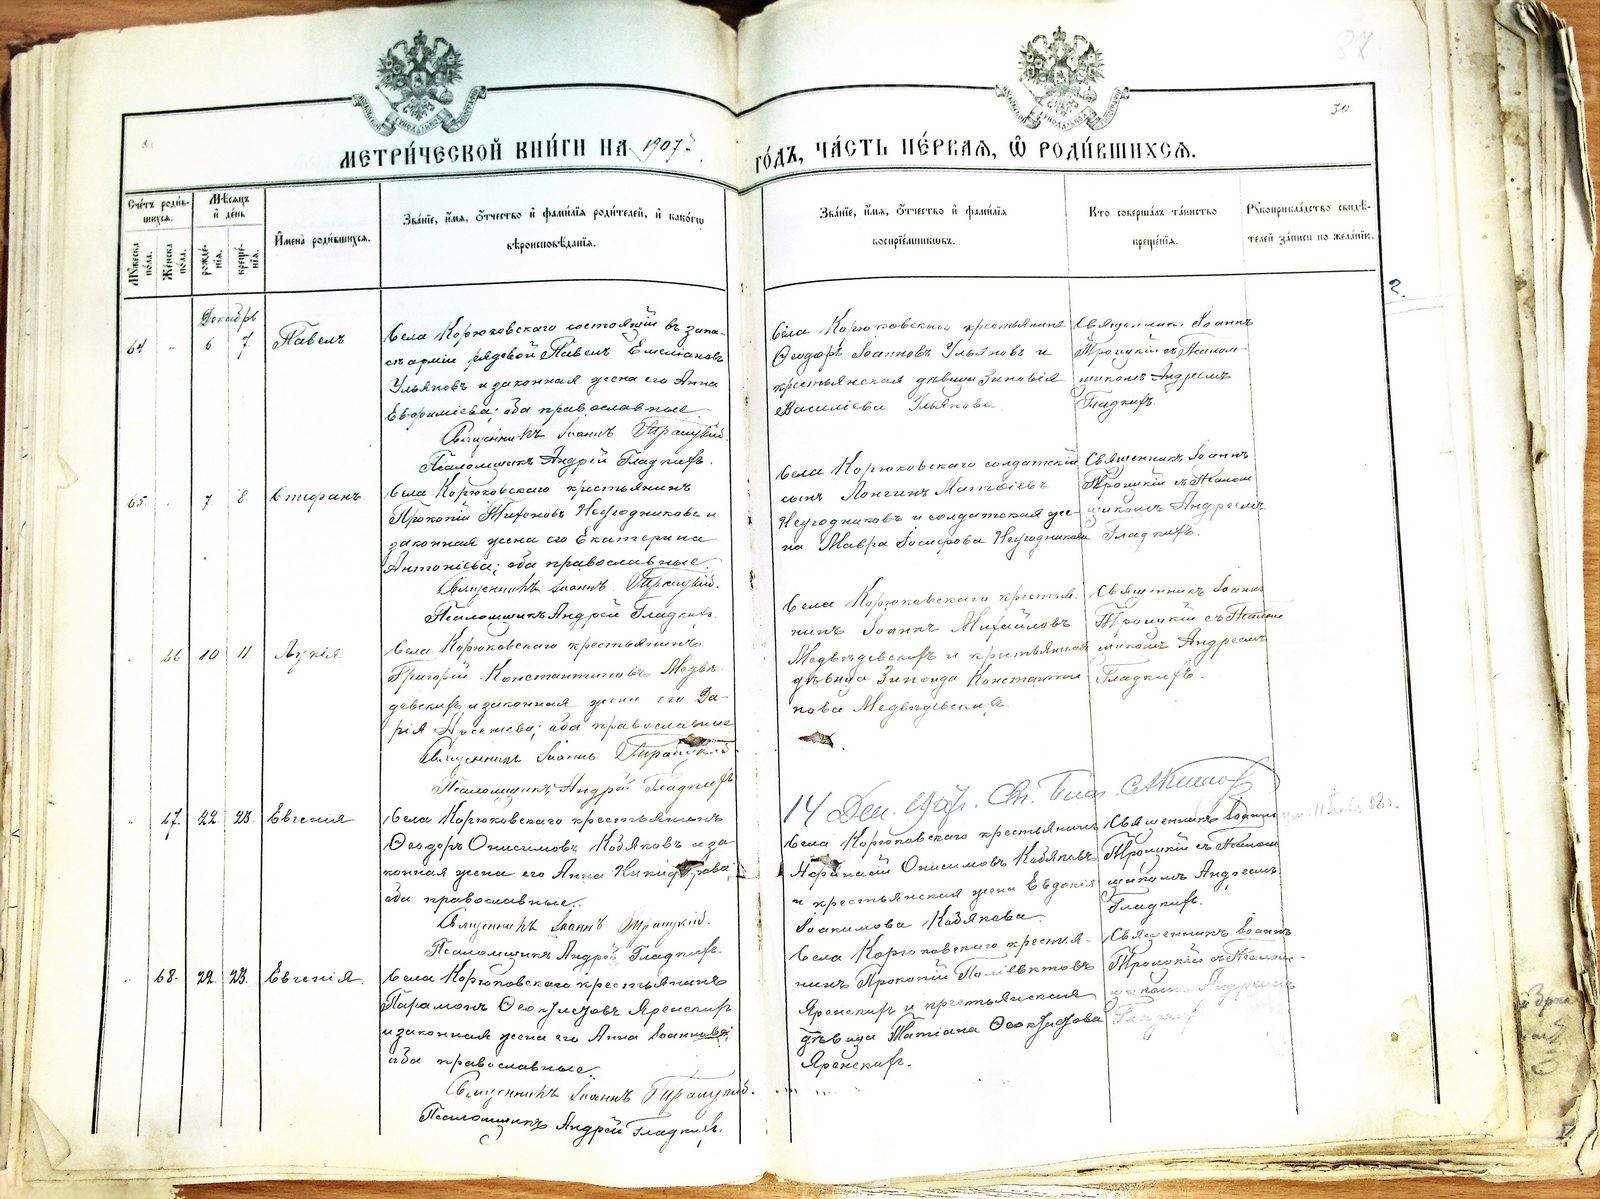 87
30
МЕТРИ́ЧЕСКОЙ КНИ́ГИ НА 1907 ГО́ДЪ, ЧА́СТЬ ПЕ́РВАЯ, Ѡ РОДИ́ВШИХСЯ.
Сче́тъ роди́в-
шихся.
Му́жеска по́ла.
Же́нска по́ла.
Мѣ́сяцъ
и҆ де́нь
рожде́-
нїя.
креще́-
нїя.
И҆мена̀ роди́вшихся.
Зва́нїе, и҆́мя, ѻ҆́тчество и҆ фами́лїя роди́телей, и҆ како́гѡ
вѣроисповѣ́данїя.
Зва́нїе, и҆́мя, ѻ҆́тчество и҆ фами́лїя
воспрїе́мниковъ.
Кто̀ соверша́лъ та́инство
креще́нїя.
Рꙋкоприкла́дство свидѣ́-
телей за́писи по жела́нїю.
Декабрь
64 6 7 Павелъ
Села Корюковскаго состоящій въ запа-
съ арміи рядовой Павелъ Емеліановъ
Ульяновъ и законная жена его Анна
Евфиміева; оба православные
Священникъ Іоаннъ Троицкій.
Псаломщикъ Андрей Гладкихъ.
Села Корюковскаго крестьянинъ
Ѳеодоръ Іоанновъ Ульяновъ и
крестьянская дѣвица Зиновія
Василіева Ульянова.
Священникъ Іоаннъ
Троицкій съ Псалом-
щикомъ Андреемъ
Гладкихъ.
65 7 8 Стефанъ.
Села Корюковскаго крестьянинъ
Прокопій Тихоновъ Неугодниковъ и
законная жена его Екатерина
Антоніева; оба православные.
Священникъ Іоаннъ Троицкій.
Псаломщикъ Андрей Гладкихъ.
Села Корюковскаго солдатскій
сынъ Логгинъ Матвіевъ
Неугодниковъ и солдатская же-
на Мавра Іосифова Неугодникова
Священникъ Іоаннъ
Троицкій съ Псалом
щикомъ Андреемъ
Гладкихъ.
66 10 11 Лукія
Села Корюковскаго крестьянинъ
Григорій Константиновъ Медвѣ
девскихъ и законная жена его Да-
рія; оба православные
Священникъ Іоаннъ Троицкій.
Псаломщикъ Андрей Гладкихъ
Села Корюковскаго крестья-
нинъ Іоаннъ Михайловъ
Медвѣдевскихъ и крестьянская
дѣвица Зинаида Константи
нова Медвѣдевскихъ.
Священникъ Іоаннъ
Троицкій съ Псалом
щикомъ Андреемъ
Гладкихъ.
14 Дек. 1907г.
67. 22 23. Евгенія
Села Корюковскаго крестьянинъ
Ѳеодоръ Онисимовъ Кобяковъ и за
конная жена его Анна Никифорова;
оба православные.
Священникъ Іоаннъ Троицкій.
Псаломщикъ Андрей Гладкихъ.
Села Корюковскаго крестьянинъ
Онисимовъ Кобяковъ
и крестьянская жена Евдокія
Іоакимова Кобякова.
Священникъ Іоаннъ
Троицкій съ Псалом
щикомъ Андреемъ
Гладкихъ.
68. 22. 23. Евгенія.
Села Корюковскаго крестьянинъ
Парамонъ Ѳеоктистовъ Яренскихъ
и законная жена его Анна Іоаннова;
оба православные.
Священникъ Іоаннъ Троицкій.
Псаломщикъ Андрей Гладкихъ.
Села Корюковскаго крестья-
нинъ Прокопій Поліевктовъ
Яренскихъ и крестьянская
дѣвица Татіана Ѳеоктистова
Яренскихъ.
Священникъ Іоаннъ
Троицкій съ Псалом-
щикомъ Андреемъ
Гладких